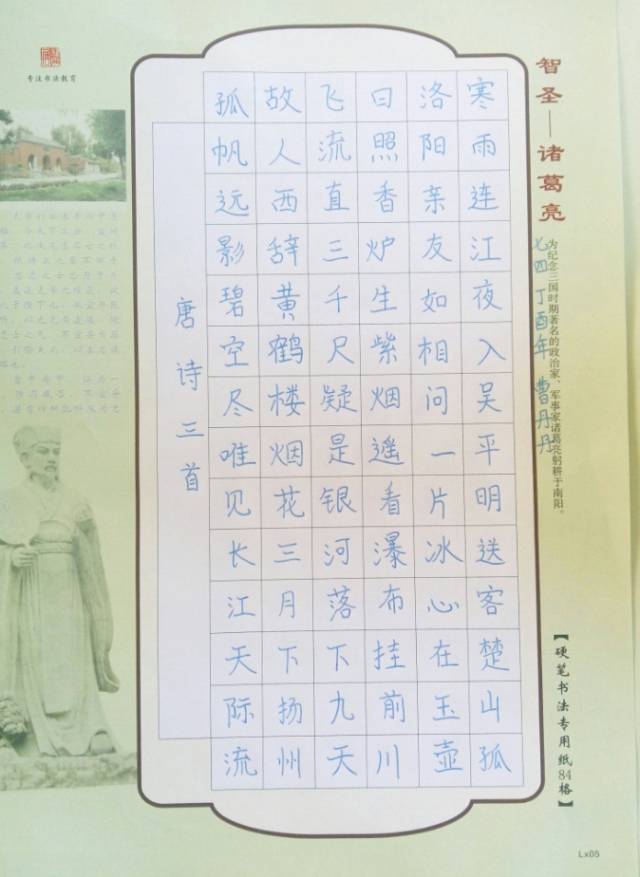 智圣—诸葛亮
为纪念三国时期著名的政治家、军事家诸葛亮躬耕于南阳。
七四 丁酉年 曹丹丹
【硬笔书法专用纸84格】
寒雨连江夜入吴平明送客楚山孤
洛阳亲友如相问一片冰心在玉壶
日照香炉生紫烟遥看瀑布挂前川
飞流直三千尺疑是银河落下九天
故人西辞黄鹤楼烟花三月下扬州
孤帆远影碧空尽唯见长江天际流
唐诗三首
专注书法教育
Lx05